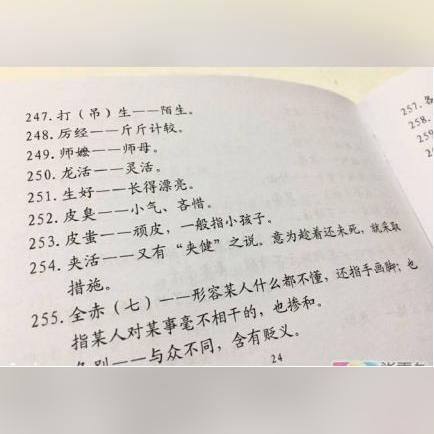 247. 打（吊）生——陌生。
248. 厉经——斤斤计较。
249. 师嬷——师母。
250. 龙活——灵活。
251. 生好——长得漂亮。
252. 皮臭——小气、吝惜。
253. 皮蚩——顽皮，一般指小孩子。
254. 夹活——又有“夹健”之说。意为趁着还未死，就采取
措施。
255. 全赤（七）——形容某人什么都不懂，还指手画脚；也
指某人对某事毫不相干的，也掺和。
别——与众不同，含有贬义。
24
257.
258.
259